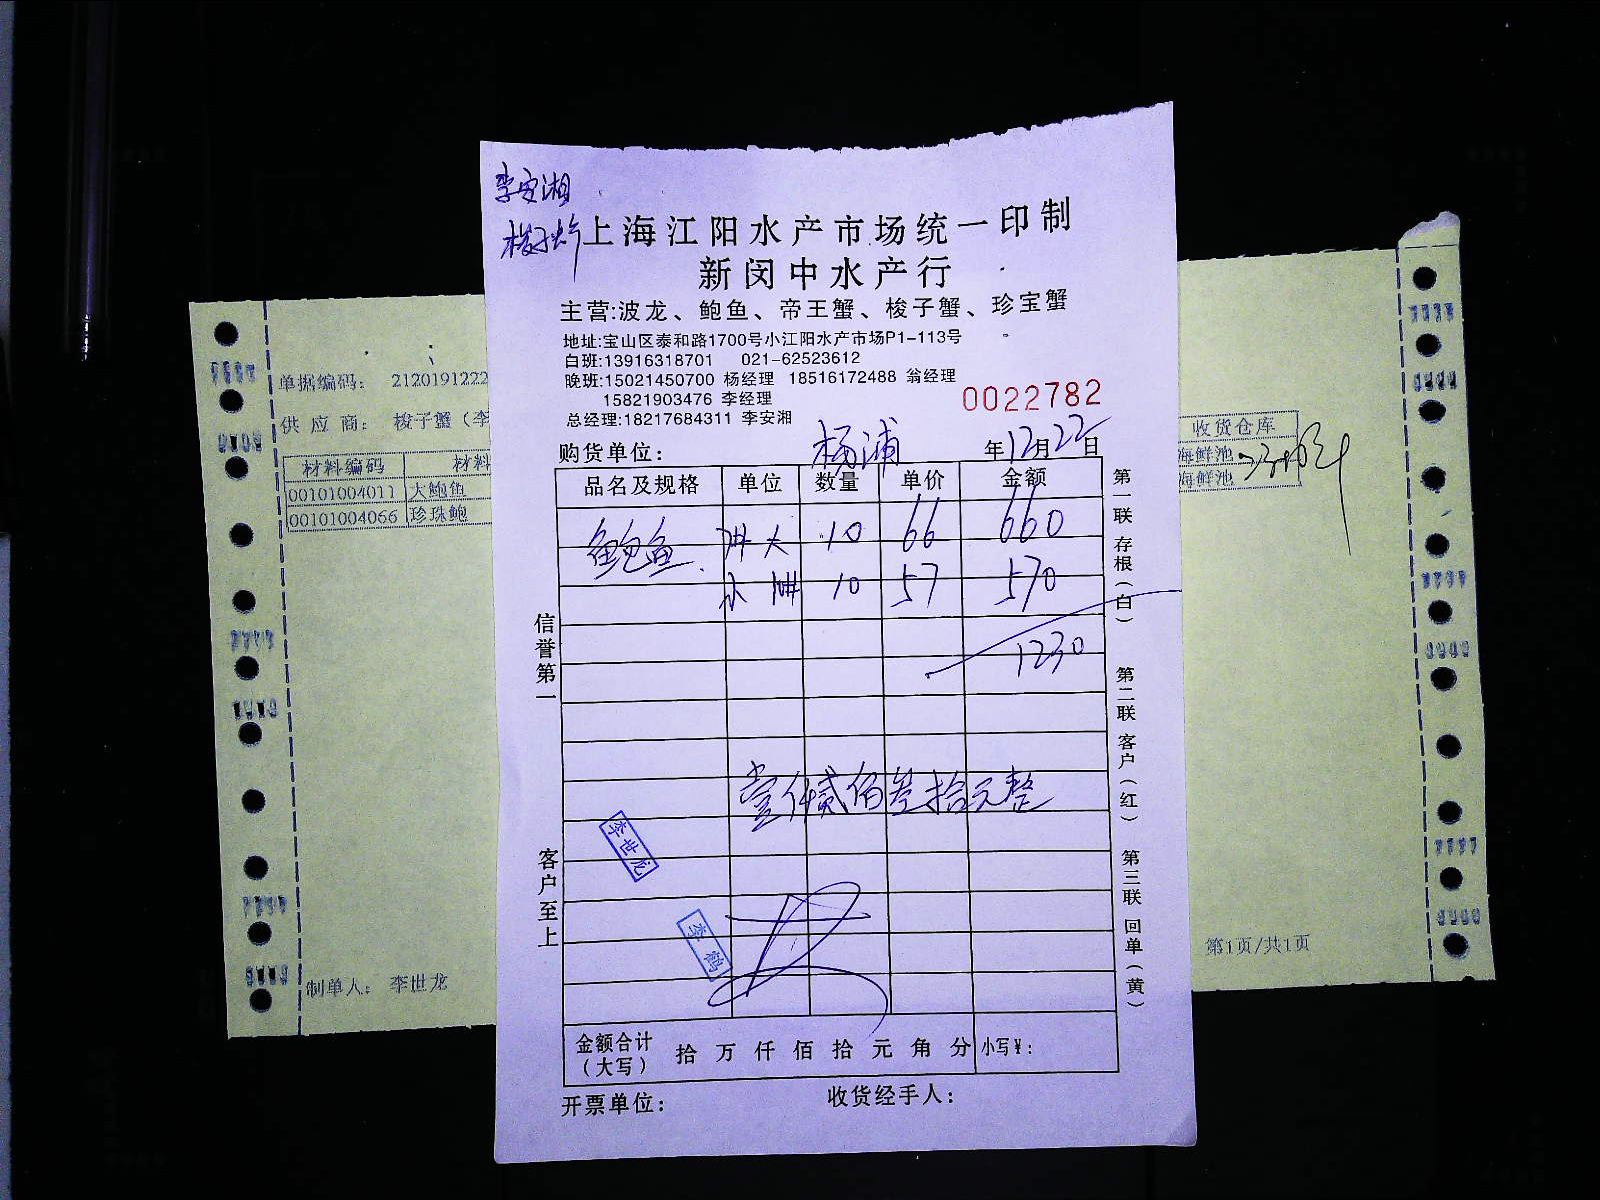 李安湘
梭子蟹
上海江阳水产市场统一印制
新闵中水产行
主营:波龙、鲍鱼、帝王蟹、梭子蟹、珍宝蟹
地址:宝山区泰和路1700号小江阳水产市场P1-113号
白班:13916318701 021-62523612
晚班:15021450700 杨经理 18516172488 翁经理
15821903476 李经理
总经理:18217684311 李安湘
0022782
购货单位: 杨浦 年12月22日
品名及规格 单位 数量 单价 金额
鲍鱼 大 10 66 660
小 10 57 570
1230
壹仟贰佰叁拾元整
李世龙
李鹤
金额合计(大写) 拾 万 仟 佰 拾 元 角 分 小写¥:
开票单位: 收货经手人:
信誉第一
客户至上
第一联 存根(白)
第二联 客户(红)
第三联 回单(黄)
单据编码: 2120191222
供应商: 梭子蟹(李
材料编码 材料
00101004011 大鲍鱼
00101004066 珍珠鲍
制单人: 李世龙
收货仓库
海鲜池
海鲜池
第1页/共1页